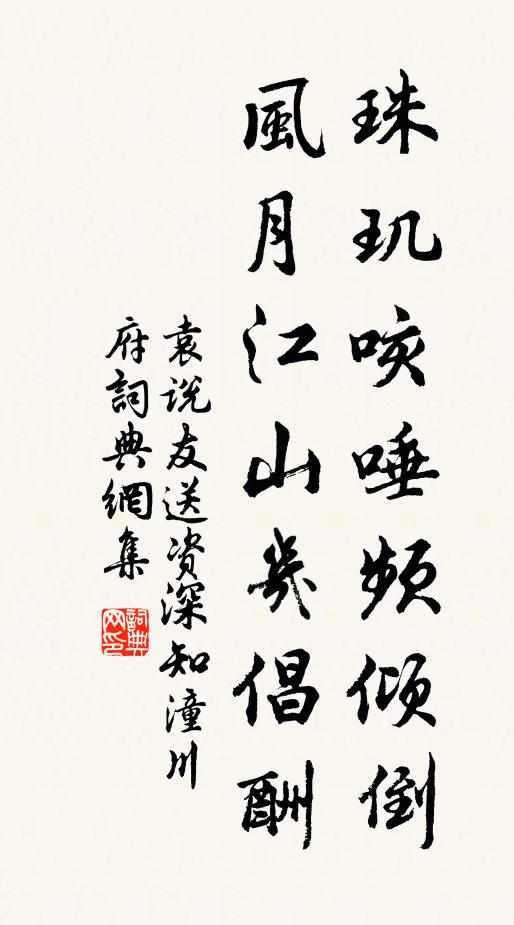 珠玑咳唾頻倾倒
風月江山幾倡酬
袁说友送资深知潼川
府詞典網集
詞典
网印